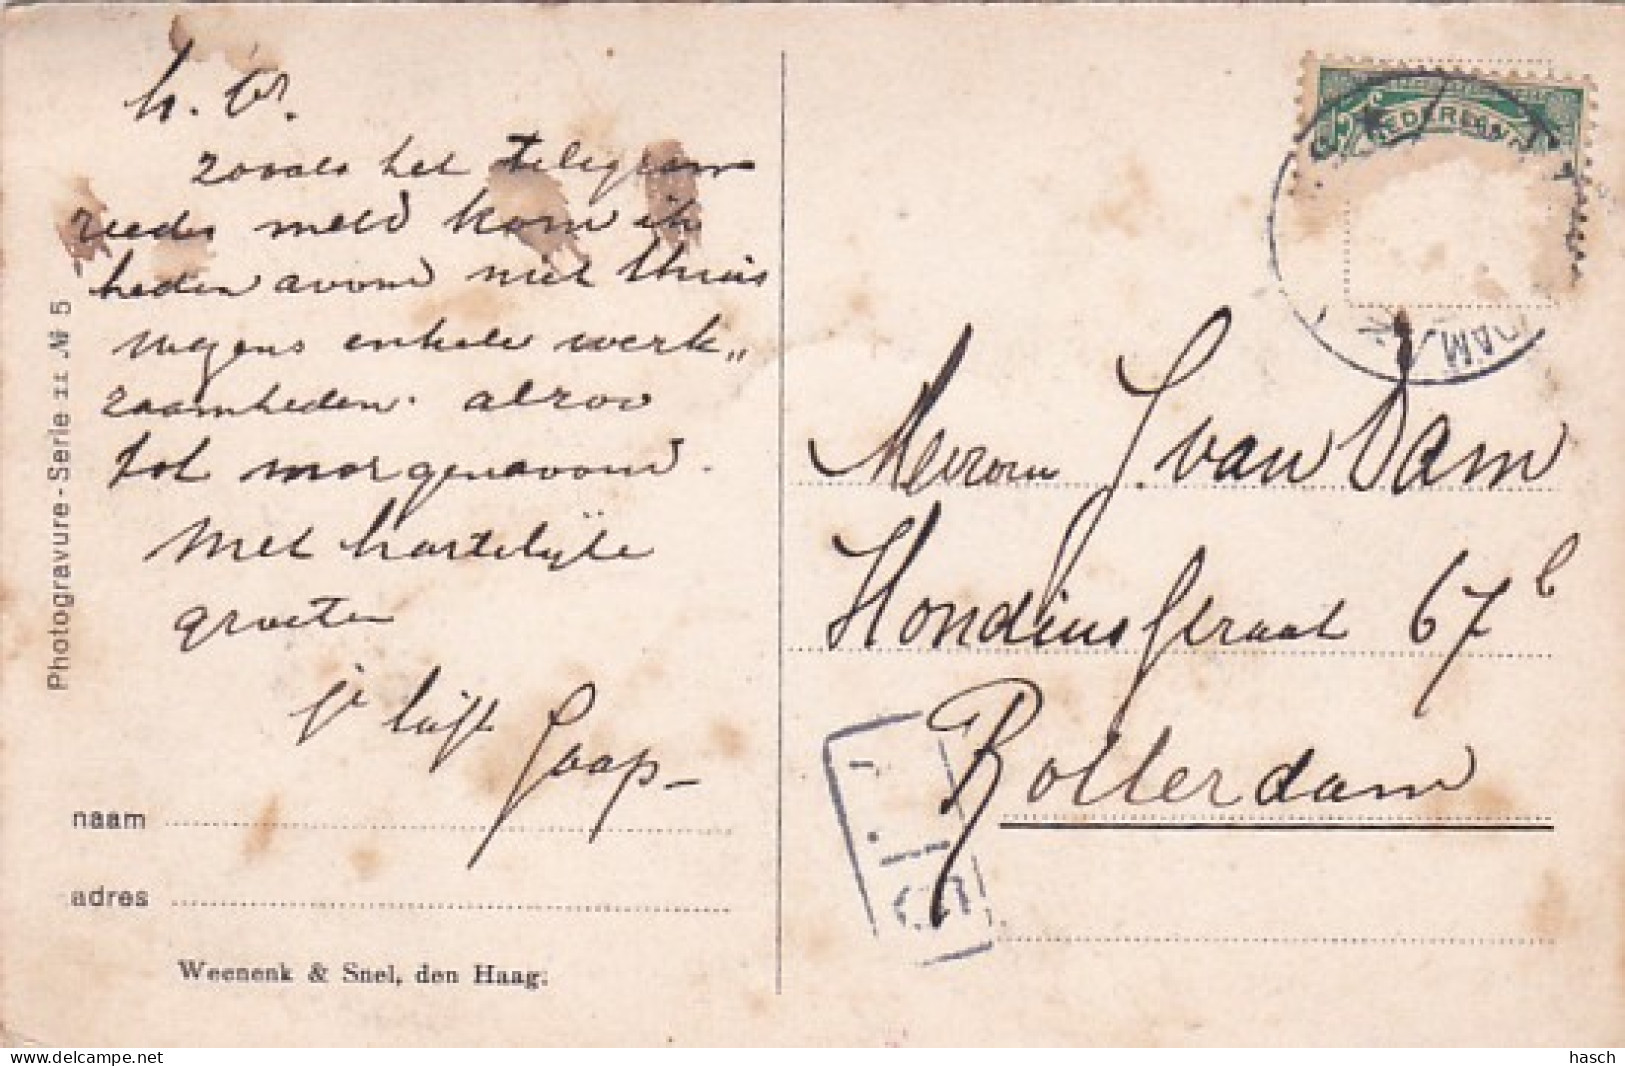 zooals het telegram
reeds meld kom ik
heden avond niet thuis
wegens enkele werk„
zaamheden. alzoo
tot morgenavond.
Met hartelijke
groeten
je liefh Jaap
naam
adres
Weenenk & Snel, den Haag.
Photogravure-Serie II № 5
NEDERLAND
DAM
Mevrouw J. van Dam
Hondiusstraat 67b
Rotterdam
hasch
https://www.delcampe.net